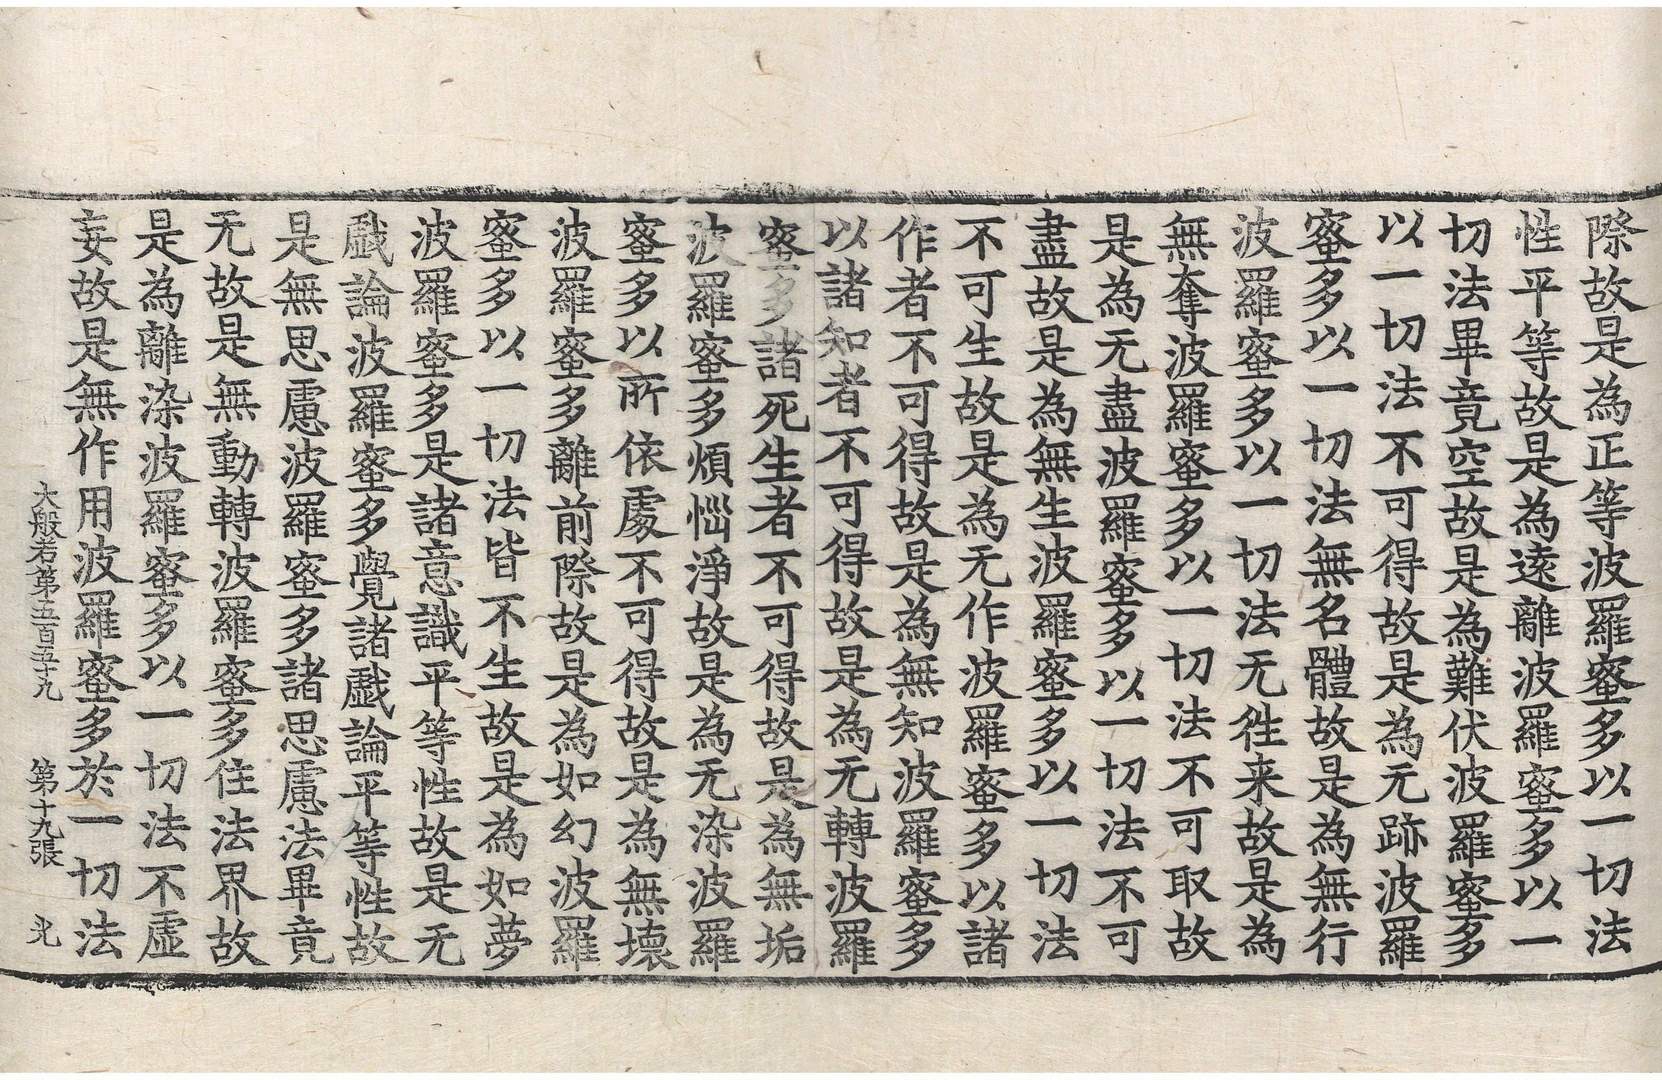 際故是為正等波羅蜜多以一切法
性平等故是為遠離波羅蜜多以一
切法畢竟空故是為難伏波羅蜜多
以一切法不可得故是為无跡波羅
蜜多以一切法無名體故是為無行
波羅蜜多以一切法无徃来故是為
無奪波羅蜜多以一切法不可取故
是為无盡波羅蜜多以一切法不可
盡故是為無生波羅蜜多以一切法
不可生故是為无作波羅蜜多以諸
作者不可得故是為無知波羅蜜多
以諸知者不可得故是為无轉波羅
蜜多諸死生者不可得故是為無垢
波羅蜜多煩惱淨故是為无染波羅
蜜多以所依處不可得故是為無壞
波羅蜜多離前際故是為如幻波羅
蜜多以一切法皆不生故是為如夢
波羅蜜多是諸意識平等性故是无
戱論波羅蜜多覺諸戱論平等性故
是無思慮波羅蜜多諸思慮法畢竟
无故是無動轉波羅蜜多住法界故
是為離染波羅蜜多以一切法不虛
妄故是無作用波羅蜜多於一切法
大般若第五百五十九 第十九張 光